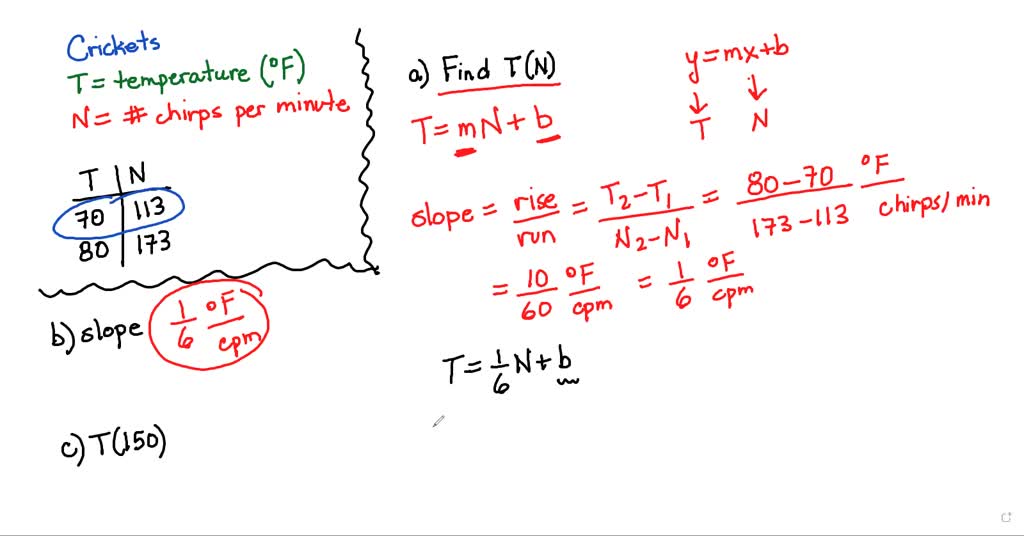 Crickets
T = temperature (°F)
N = # chirps per minute
T | N
70 | 113
80 | 173
b) slope 1/6 °F/cpm
c) T(150)
a) Find T(N)
y = mx + b
↓ ↓
T N
T = mN + b
slope = rise/run = T₂ - T₁ / N₂ - N₁ = 80 - 70 / 173 - 113 °F / chirps/min
= 10/60 °F/cpm = 1/6 °F/cpm
T = 1/6 N + b